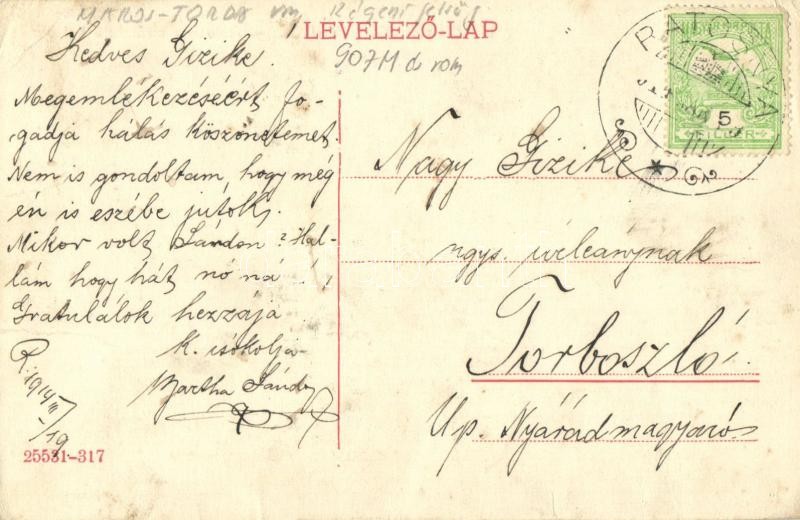 MAROS-TORDA vm. Régeni felső j.
LEVELEZŐ-LAP
907M d rom
Kedves Gizike.
Megemlékezéséért fo-
gadja hálás köszönetemet.
Nem is gondoltam, hogy még
én is eszébe jutok.
Mikor volt Sándon? Hal-
lám hogy hát nő ná . . !
Gratulálok hezzája
K. csókolja
Bartha Sándor
R. 1914 III/19
25531-317
RATOSNYA
MAGYAR
5
FILLÉR
Nagy Gizike
ngys. úrleánynak
Torboszló
Up. Nyárádmagyarós